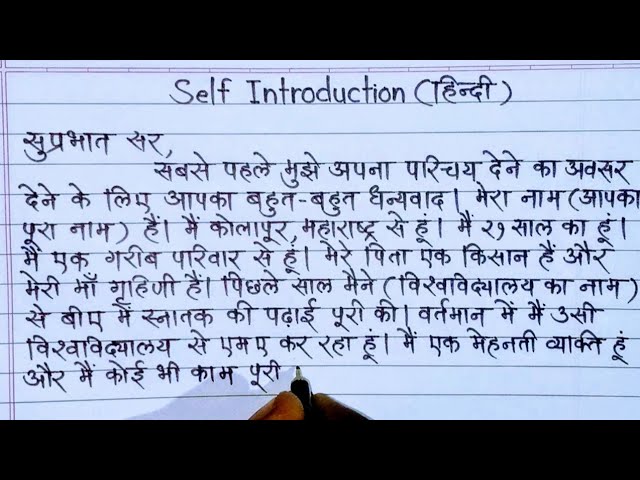 Self Introduction (हिन्दी)
सुप्रभात सर,
सबसे पहले मुझे अपना परिचय देने का अवसर
देने के लिए आपका बहुत-बहुत धन्यवाद। मेरा नाम (आपका
पूरा नाम) हैं। मैं कोलापूर, महाराष्ट्र से हूं। मैं २१ साल का हूं।
मैं एक गरीब परिवार से हूं। मेरे पिता एक किसान हैं और
मेरी माँ गृहिणी हैं। पिछले साल मैने (विश्वविद्यालय का नाम)
से बीए में स्नातक की पढ़ाई पूरी की। वर्तमान में मैं उसी
विश्वविद्यालय से एमए कर रहा हूं। मैं एक मेहनती व्यक्ति हूं
और मैं कोई भी काम पूरी